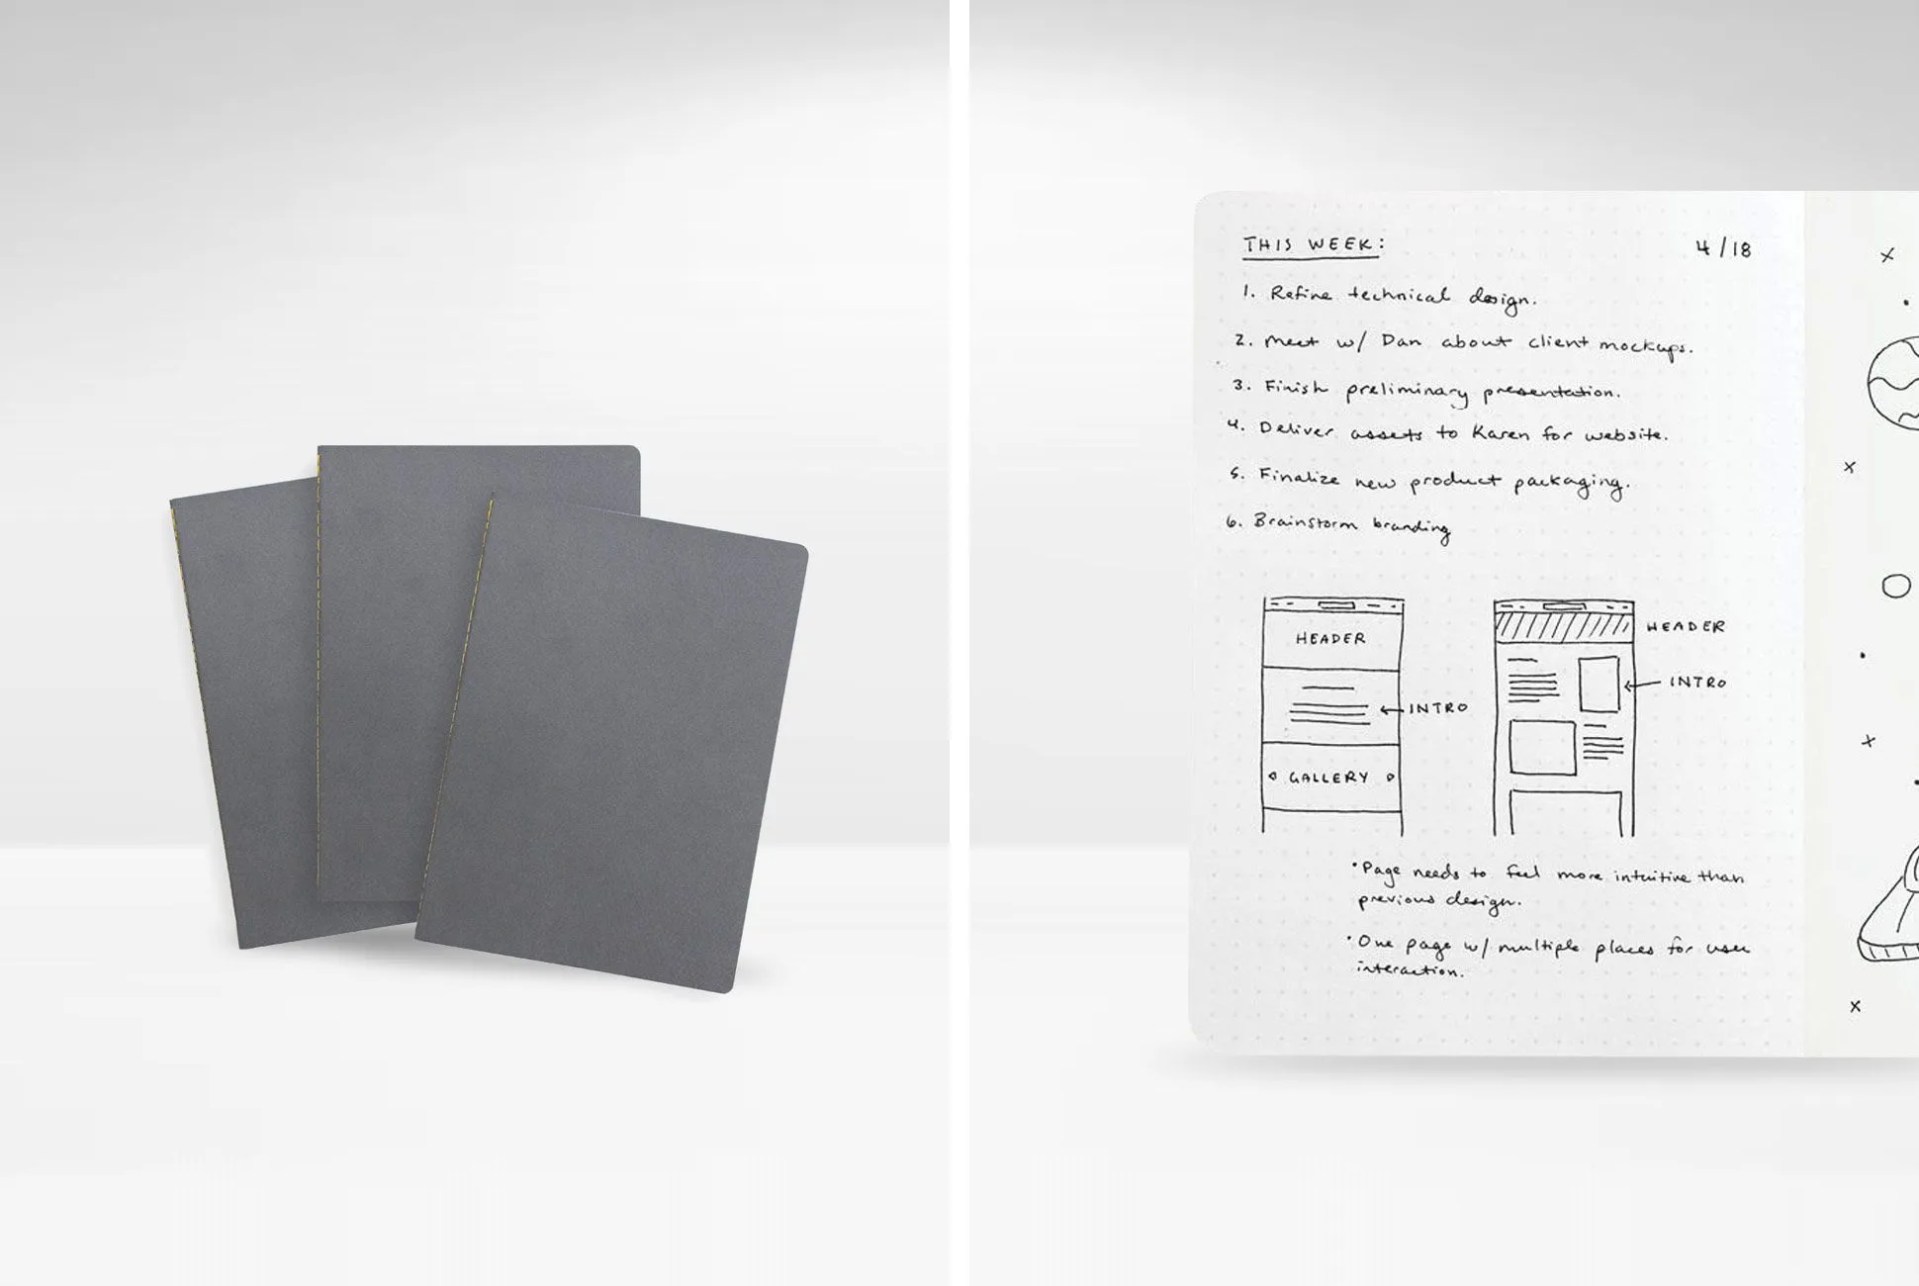 THIS WEEK:
4/18
1. Refine technical design.
2. Meet w/ Dan about client mockups.
3. Finish preliminary presentation.
4. Deliver assets to Karen for website.
5. Finalize new product packaging.
6. Brainstorm branding
HEADER
INTRO
GALLERY
HEADER
INTRO
• Page needs to feel more intuitive than
previous design.
• One page w/ multiple places for user
interaction.